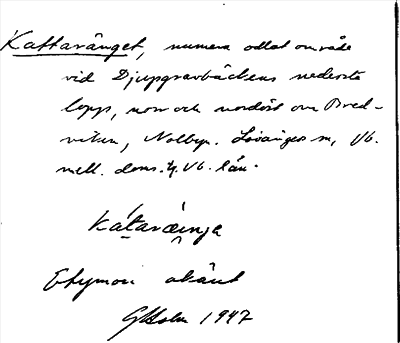 Kattavänget, numera odlat område
vid Djupgravbäckens nedersta
lopp, norr och nordöst om Bred-
viken, Nolbyn. Lövånger sn, Vb.
mell. doms. Vb. län.
Etymon okänt
GHolm 1947